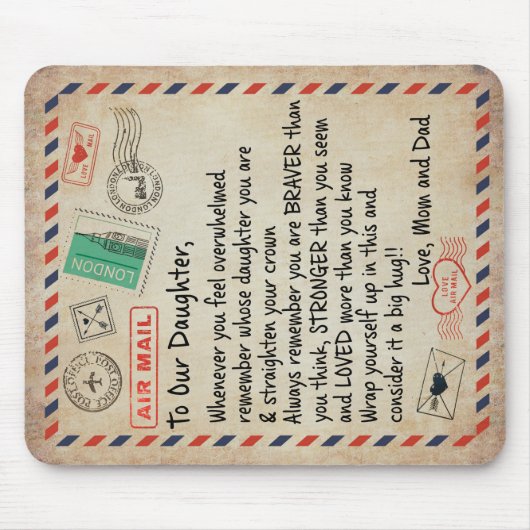 POST OFFICE POST OFFICE
LONDON
LONDON LONDON LONDON
LOVE MAIL
AIR MAIL
To Our Daughter,
Whenever you feel overwhelmed
remember whose daughter you are
& straighten your crown
Always remember you are BRAVER than
you think, STRONGER than you seem
and LOVED more than you know
Wrap yourself up in this and
consider it a big hug!!
Love, Mom and Dad
LOVE
AIR MAIL